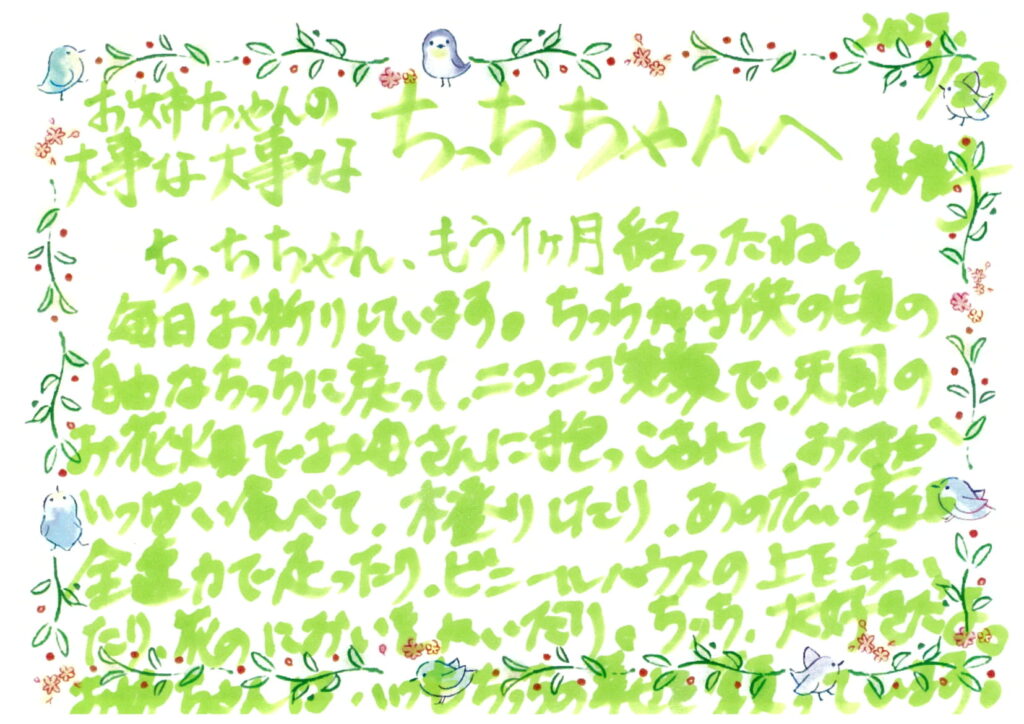 2023.
1/23
お姉ちゃんの
大事な大事な
ちっちちゃんへ
ちっちちゃん、もう1ヶ月経ったね。
毎日お祈りしています。ちっちが子供の頃の
自由なちっちに戻って、ニコニコ笑顔で、天国の
お花畑でお母さんに抱っこされて おなか
いっぱい食べて、木登りしたり、あの広い
全速力で走ったり、ビニールハウスの上を歩い
たり、花のにおいをかいだり。ちっち、大好きだ
お姉ちゃんは、いつもちっちの幸せを願っています。